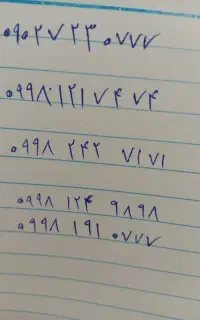 ۰۹۰۲۷۲۳۰۷۷۷
۰۹۹۸۰۱۲۱۷۴۷۴
۰۹۹۸ ۲۴۲ ۷۱۷۱
۰۹۹۸ ۱۲۴ ۹۸۹۸
۰۹۹۸ ۱۹۱ ۰۷۷۷